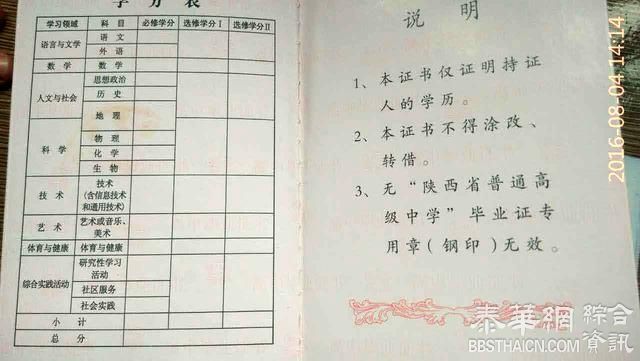 学 分 表
学习领域 科 目 必修学分 选修学分Ⅰ 选修学分Ⅱ
语言与文学 语 文
外 语
数 学 数 学
人文与社会 思想政治
历 史
地 理
科 学 物 理
化 学
生 物
技 术 技术
(含信息技术
和通用技术)
艺 术 艺术或音乐、
美术
体育与健康 体育与健康
综合实践活动 研究性学习
活动
社区服务
社会实践
小 计
总 分
说 明
1、本证书仅证明持证
人的学历。
2、本证书不得涂改、
转借。
3、无“陕西省普通高
级中学”毕业证专
用章(钢印)无效。
2016-08-04 14:14
泰華網 綜合
資訊
BBSTHAICN.COM